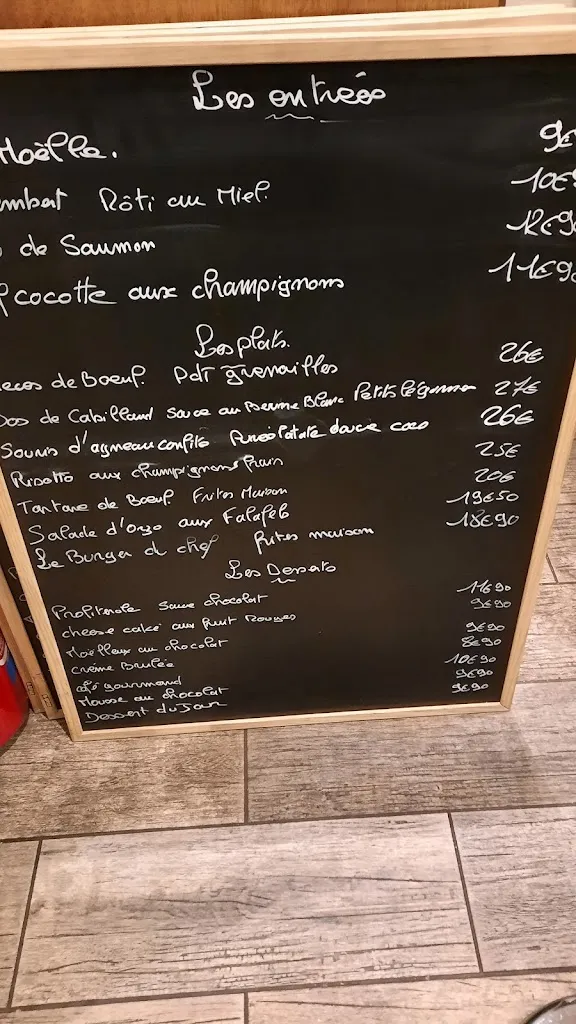 Les entrées
Moëlle. 9€
embert Rôti au Miel. 10€9
de Saumon 12€90
cocotte aux champignons 11€90
Les plats.
ecos de Boeuf. PDT grenailles 26€
Dos de Cabillaud Sauce au Beurre Blanc Petits légumes 27€
Souris d'agneau confite Purée Patate douce coco 26€
Risotto aux champignons frais 25€
Tartare de Boeuf. Frites Maison 20€
Salade d'Orzo aux Falafels 19€50
Le Burger du chef frites maison 18€90
Les Desserts
Profiterole Sauce chocolat 11€90
cheese cake aux fruit Rouges 9€90
Moëlleux au chocolat 9€90
crème Brulée 8€90
café gourmand 10€90
Mousse au chocolat 9€90
Dessert du Jour 9€90